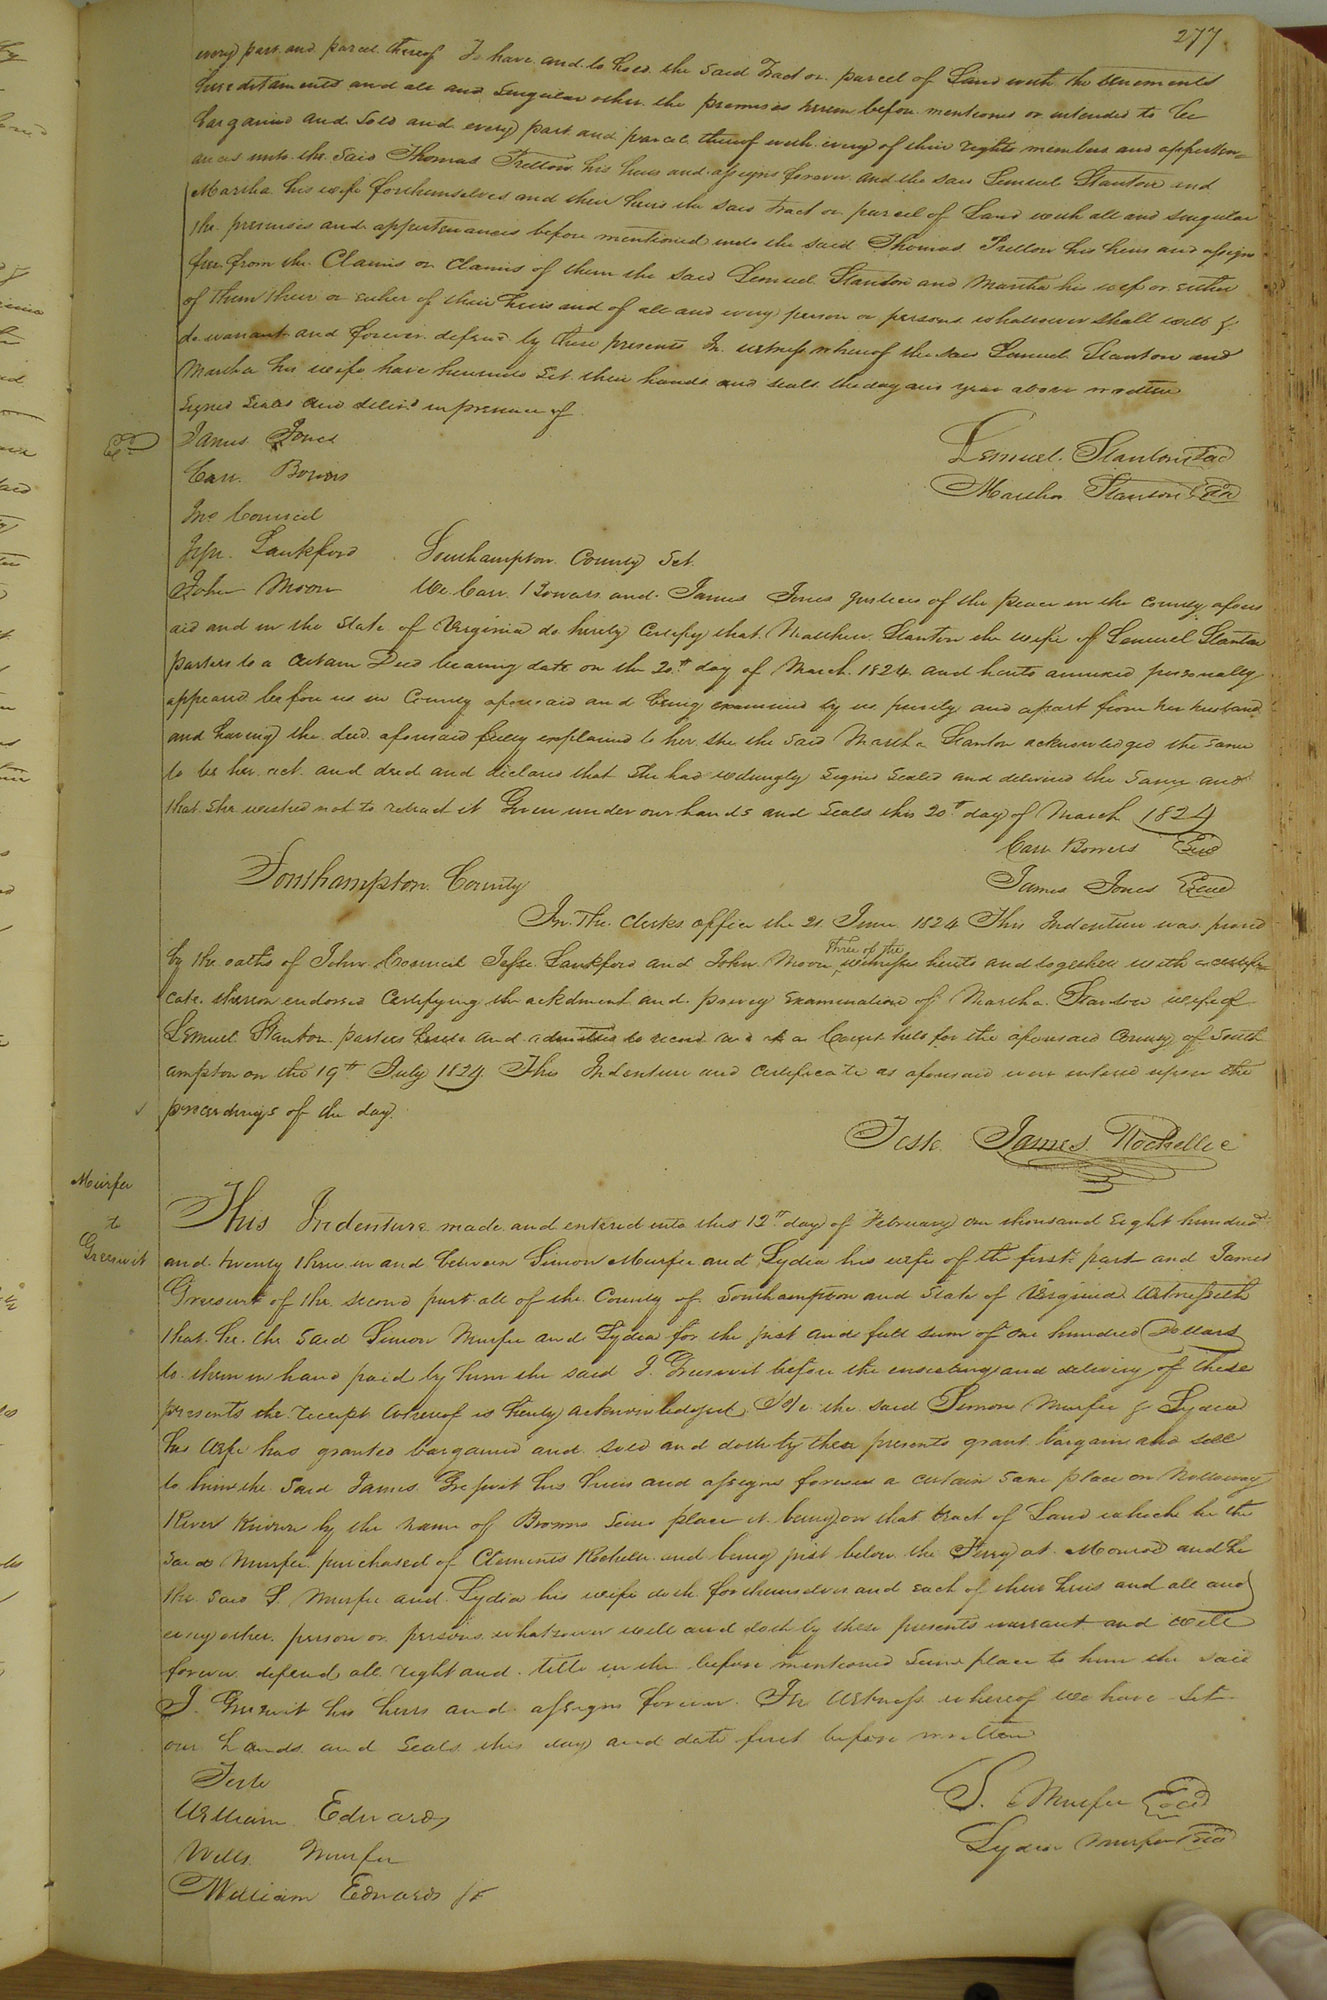 277
every part and parcel thereof To have and to hold the said Tract or parcel of Land with the tenements
hereditaments and all and singular other the premises herein before mentioned or intended to be
bargained and sold and every part and parcel thereof with every of their rights members and appurten=
ances unto the said Thomas Pretlow his heirs and assigns forever and the said Lemuel Stanton and
Martha his wife for themselves and their heirs the said tract or parcel of Land with all and singular
the premises and appurtenances before mentioned unto the said Thomas Pretlow his heirs and assigns
free from the Claims or Claims of them the said Lemuel Stanton and Martha his wife or either
of them their or either of their heirs and of all and every person or persons whatsoever shall will &
do warrant and forever defend by these presents In witness whereof the said Lemuel Stanton and
Martha his wife have hereunto set their hands and seals the day and year above written
Signed Sealed and deliver'd in presence of
James Jones
Carr Bowers
Jno Council
Jesse Lankford
John Moore
Lemuel Stanton Seal
Martha Stanton Seal
Southampton County Sct.
We Carr Bowers and James Jones Justices of the peace in the county afores
aid and in the State of Virginia do hereby Certify that Matthew Stanton the wife of Lemuel Stanton
parties to a certain Deed bearing date on the 20th day of March 1824 and hereto annexed personally
appeared before us in County aforesaid and being examined by us privily and apart from her husband
and having the deed aforesaid fully explained to her she the said Martha Stanton acknowledged the same
to be her act and deed and declared that she had willingly signed sealed and delivered the same and
that she wished not to retract it Given under our hands and seals this 20th day of March 1824
Carr Bowers Seal
James Jones Seal
Southampton County
In The Clerks office the 21 June 1824 This Indenture was proved
by the oaths of John Council Jesse Lankford and John Moore three of the witnesses hereto and together with a certifi
cate thereon endorsed Certifying the ackdment and privey Examination of Martha Stanton wife of
Lemuel Stanton parties hereto and admitted to record and at a Court held for the aforesaid County of South
ampton on the 19th July 1824 This Indenture and certificate as aforesaid were entered upon the
proceedings of the day
Teste James Rochelle C
Murfee
to
Greswit
This Indenture made and entered into this 12th day of February one thousand eight hundred
and twenty three in and between Simon Murfee and Lydia his wife of the first part and James
Greswit of the second part all of the County of Southampton and State of Virginia Witnesseth
that he the said Simon Murfee and Lydia for the just and full sum of one hundred Dollars
to them in hand paid by him the said J. Greswit before the ensealing and delivery of these
presents the receipt whereof is hereby acknowledged We the said Simon Murfee & Lydia
his wife has granted bargained and sold and doth by these presents grant bargain and sell
to him the said James Greswit his heirs and assigns forever a certain Sane place on Nottoway
River known by the name of Browns Seine place it being on that tract of Land which he the
said Murfee purchased of Clements Rochelle and being just below the Ferry at Monroe and he
the said S. Murfee and Lydia his wife doth for themselves and each of their heirs and all and
every other person or persons whatsoever will and doth by these presents warrant and will
forever defend all right and title in the before mentioned Seine place to him the said
J. Greswit his heirs and assigns forever. In Witness whereof we have set
our hands and seals this day and date first before written
Teste
William Edwards
Wells Murfee
William Edwards Jr
S. Murfee Seal
Lydia Murfee Seal